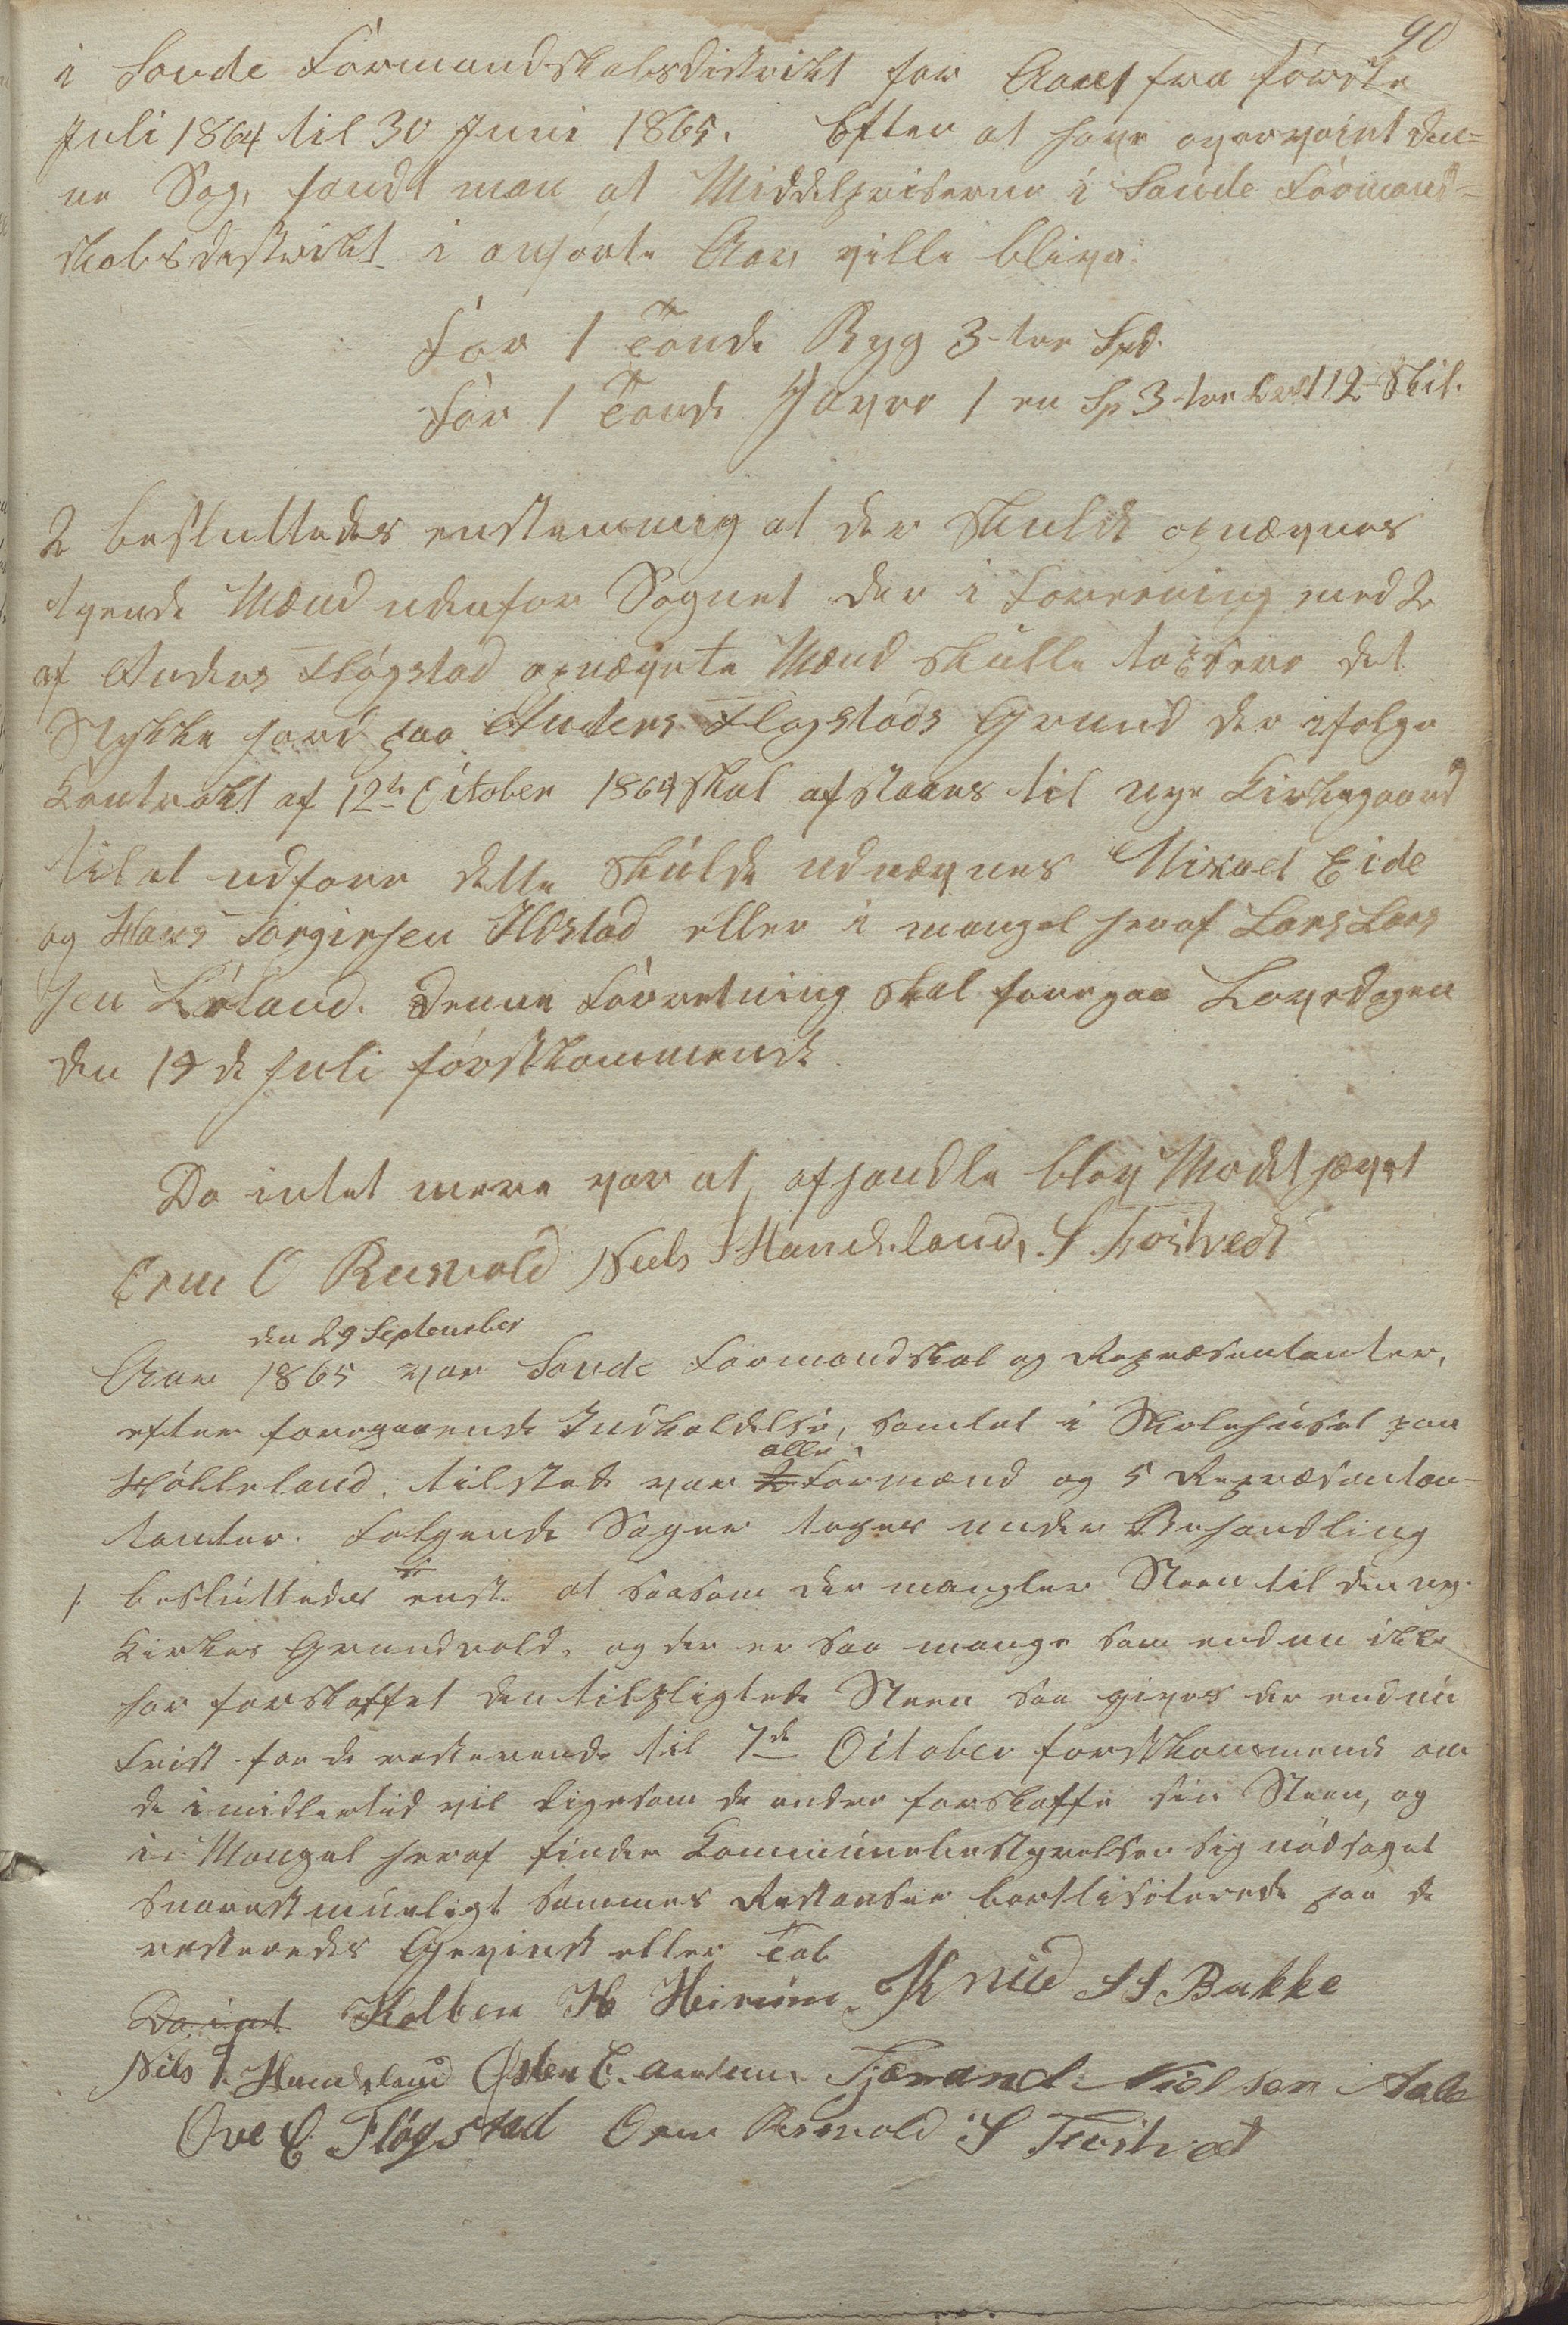 90
i Sovde Formandskabsdistrikt for Aaret fra første
Juli 1864 til 30 Juni 1865. Efter at have overveiet den=
ne Sag, fandt man at Middelpriserne i Saude Formand=
skabsdistrikt i anførte Aar ville blive:
For 1 Tønde Byg 3-tre Spd.
For 1 Tønde Havre 1 en Sp 3-tre Ort 12 Skil.
2 besluttedes enstemmig at der skulde opnævnes
tvende Mænd udenfor Sognet der i Forrening med 2
af Anders Fløgstad opnævnte Mænd skulle taxsere det
Stykke Jord paa Anders Flogstads Grund der ifølge
Kontrakt af 12te October 1864 skal afstaaes til nye Kirkegaard
til at udføre dette skulde udnævnes Mikael Eide
og Hans Torgiersen Ilstad eller i mangel heraf Lars Lars
sen Løland. Denne Forretning skal foregaa Loverdagen
den 19de Juli førstkommende
Da intet mere var at afhandle blev Mødet hævet
Orm O Rusvold Neels J Handeland, S. Trostvedt
den 29 September
Aar 1865 var Sovde Formandskab og Repræsentanter,
efter foregaaende Indkaldelse, samlet i Skolehuset paa
Hølleland. tilstede var alle Formænd og 5 Repræsentan=
tanter. Følgende Sager toges under Behandling
1. besluttedes enst. at saasom der mangler Steen til den nye
Kirkes Grundvold, og der er saa mange som endnu ikke
har forskaffet den tilpligtede Steen saa gives der endnu
Frist for de resterende til 7de October førstkommende om
de imidlertid vil ligesom de andre forskaffe sin Steen, og
i Mangel heraf finder Kommunebestyrelsen sig nødsaget
snarest mueligt sammes Restanser bortlisiterede paa de
resteredes Gevinst eller Tab
Da int Kolben H Heirum Knud SS Bakke
Nils J. Handeland Østen C. Tjerand Nielsen Aale
Ove C Fløgstad Orm Rusvold S Trostvedt